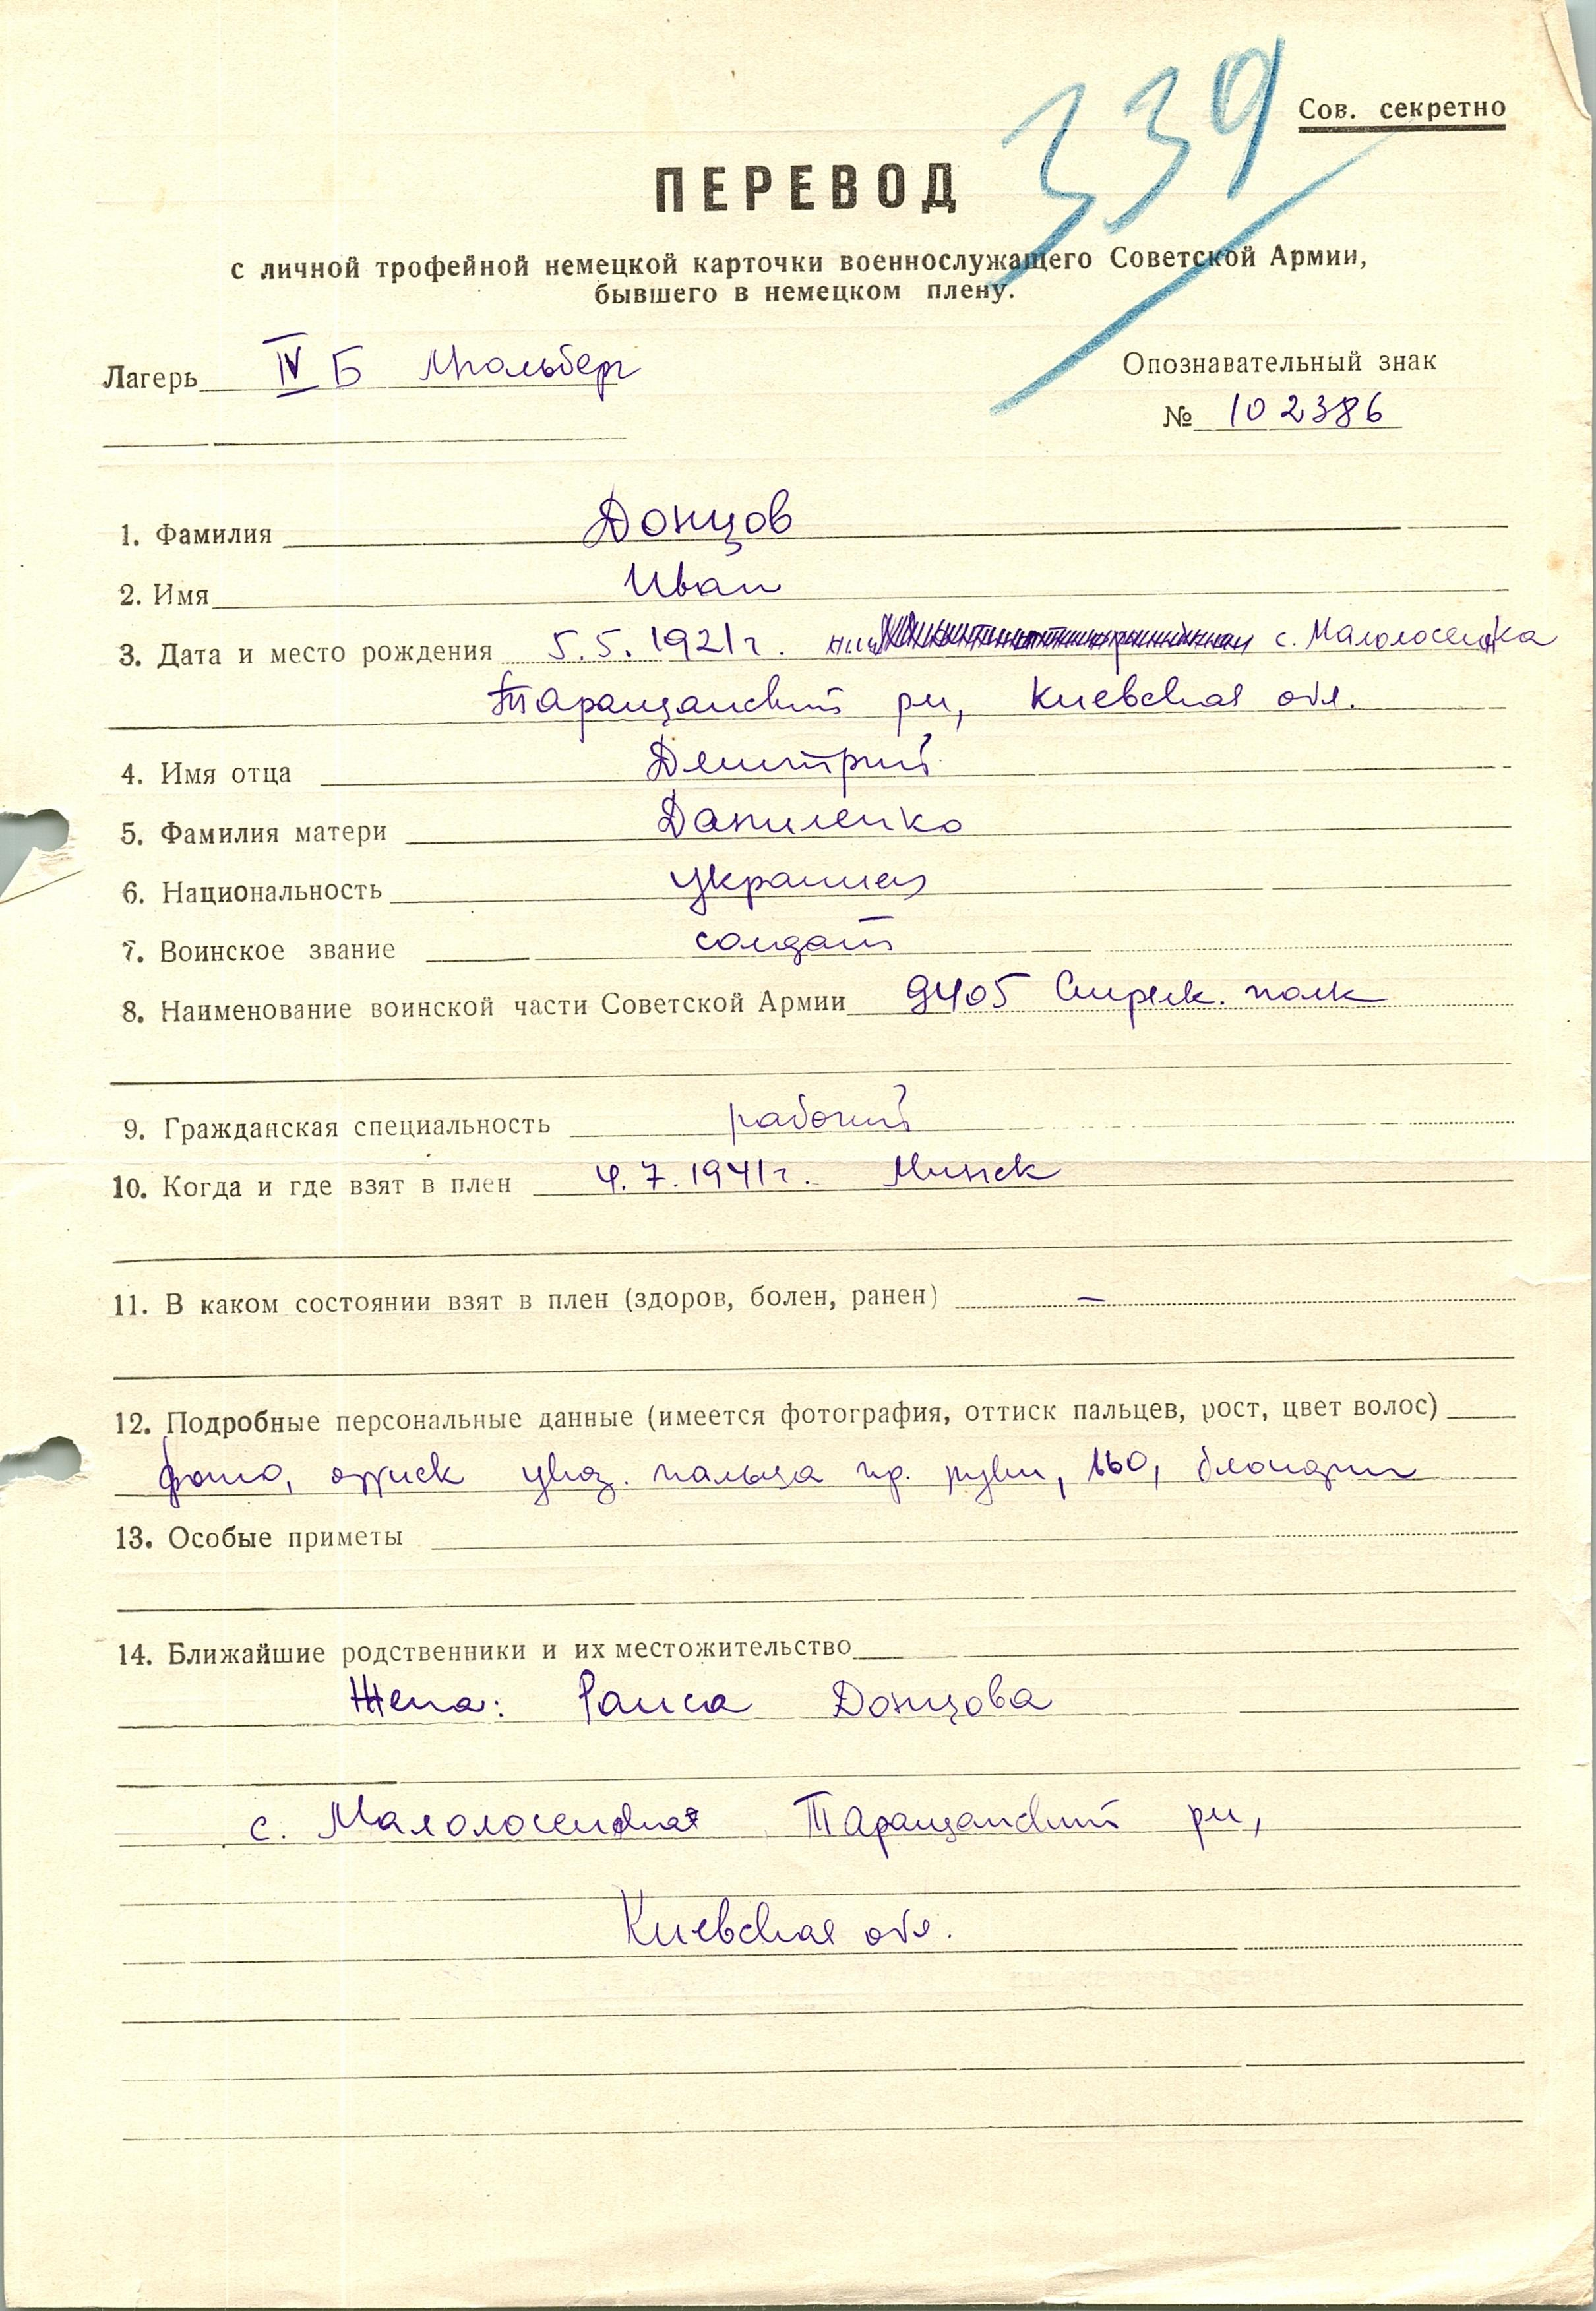 339
Сов. секретно
ПЕРЕВОД
с личной трофейной немецкой карточки военнослужащего Советской Армии,
бывшего в немецком плену.
Лагерь IV Б Мюльберг
Опознавательный знак
№ 102386
1. Фамилия Донцов
2. Имя Иван
3. Дата и место рождения 5.5.1921г. с. Малолосенка
Таращанский рн, Киевская обл.
4. Имя отца Дмитрий
5. Фамилия матери Даниленко
6. Национальность украинец
7. Воинское звание солдат
8. Наименование воинской части Советской Армии 9405 Стрелк. полк
9. Гражданская специальность рабочий
10. Когда и где взят в плен 4.7.1941г. Минск
11. В каком состоянии взят в плен (здоров, болен, ранен) –
12. Подробные персональные данные (имеется фотография, оттиск пальцев, рост, цвет волос)
фото, оттиск указ. пальца пр. руки, 160, блондин
13. Особые приметы
14. Ближайшие родственники и их местожительство
Жена: Раиса Донцова
с. Таращанский рн,
Киевская обл.